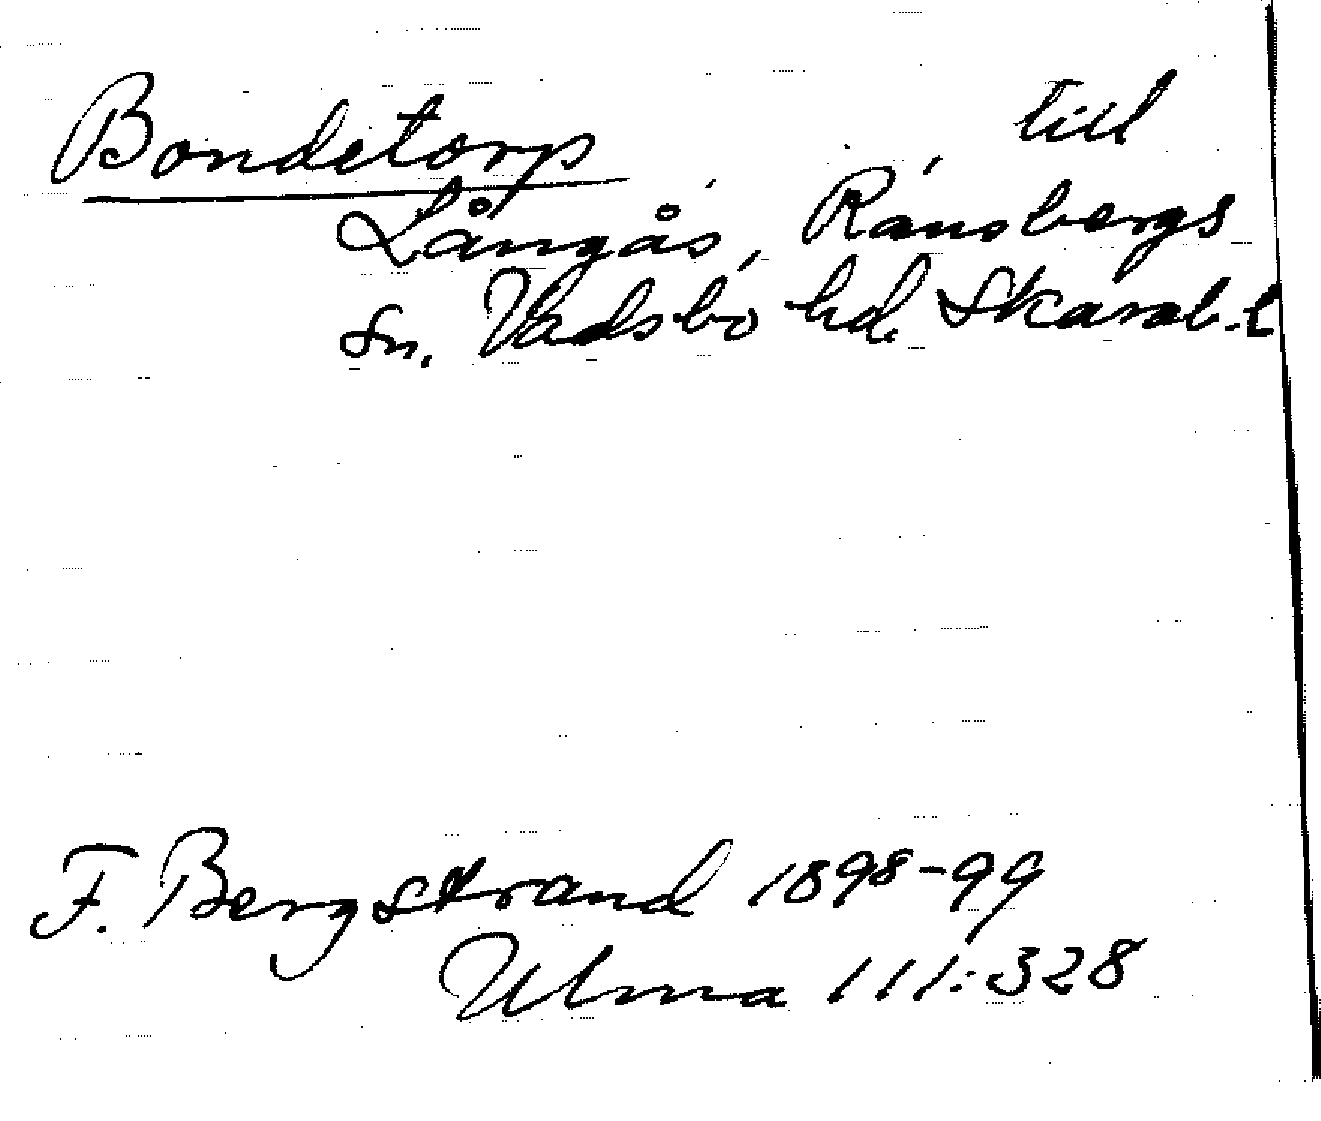 Bondetorp till
Långås, Ransbergs
sn. Vadsbo hd. Skarab.l
F. Bergstrand 1898-99
Ulma 111:328